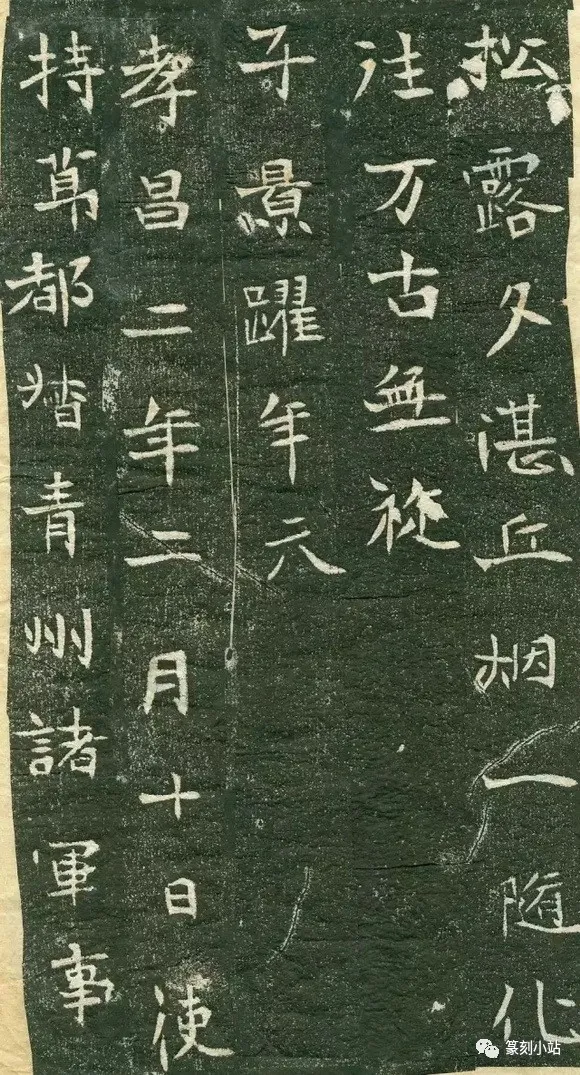 松露夕湛丘烟一随化
往万古無從
子景躍年六
孝昌二年二月十日使
持節都督青州諸軍事
篆刻小站